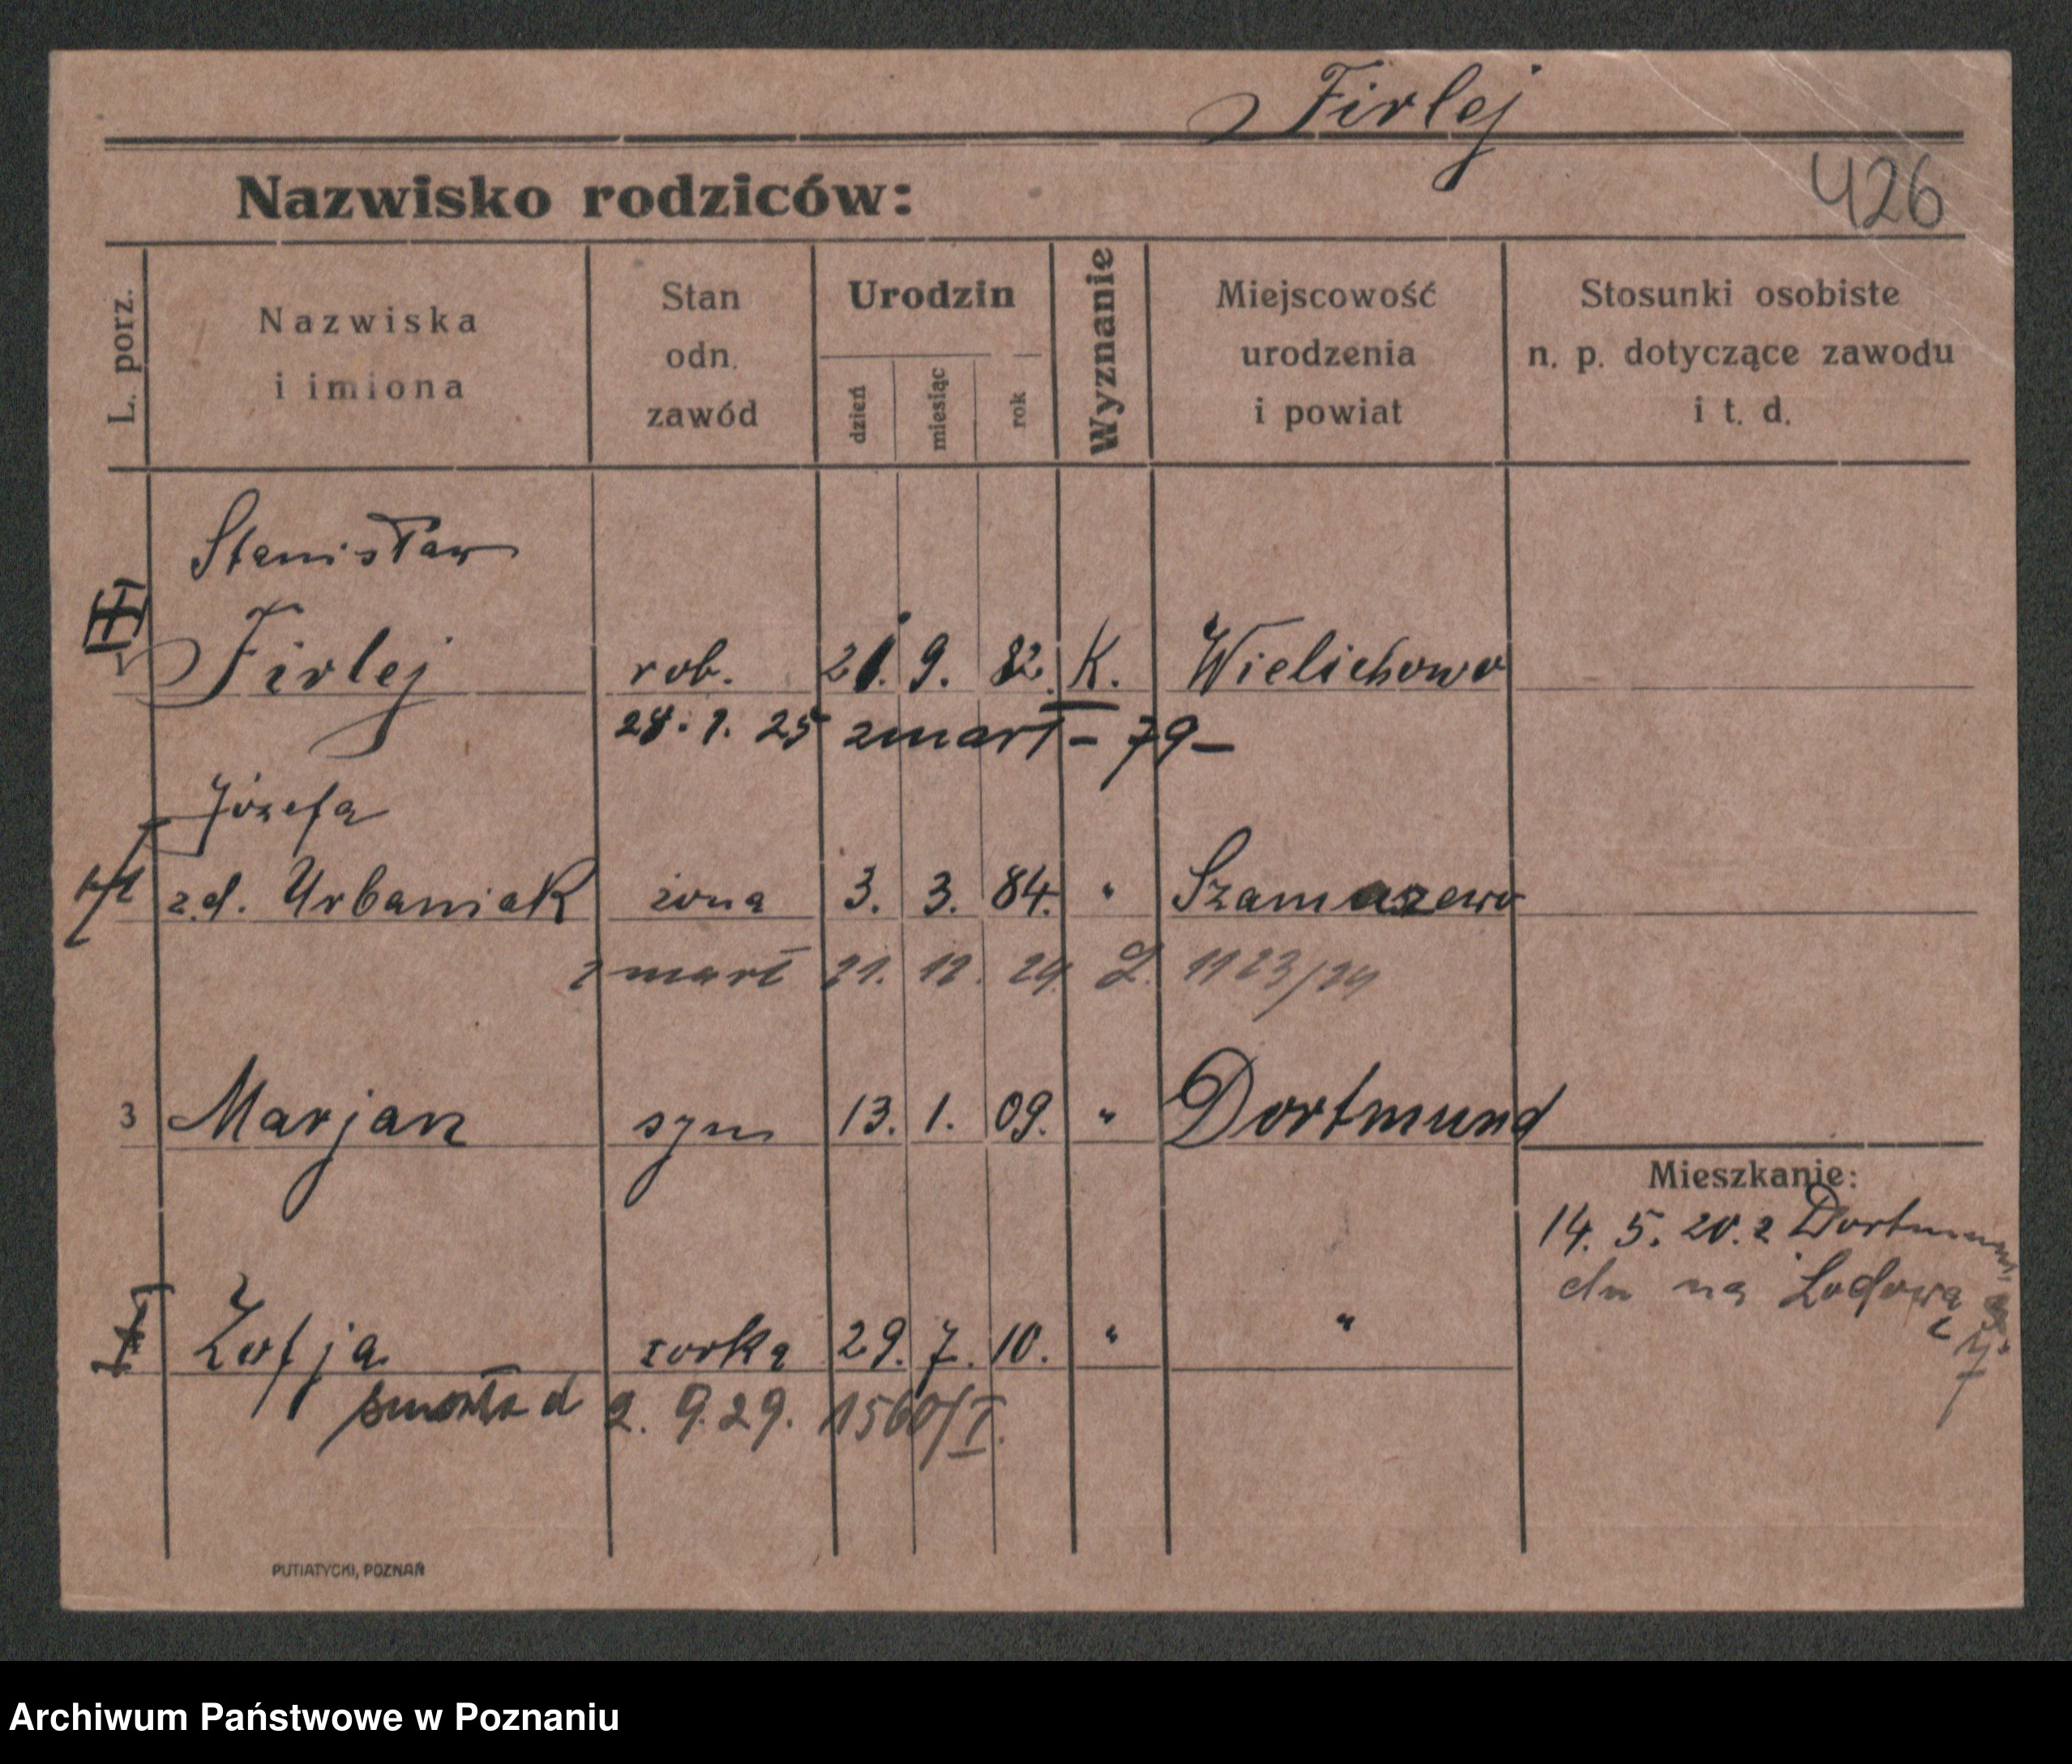 Firlej
426
Nazwisko rodziców:
L. porz.
Nazwiska
i imiona
Stan
odn.
zawód
Urodzin
dzień
miesiąc
rok
Wyznanie
Miejscowość
urodzenia
i powiat
Stosunki osobiste
n. p. dotyczące zawodu
i t. d.
Stanisław
Firlej rob. 21. 9. 82. K. Wielichowo
28. 1. 25 zmarł - 79 -
Józefa
z.d. Urbaniak żona 3. 3. 84. " Szamarzewo
zmarł 21. 12. 24. L. 1123/24
3 Marjan syn 13. 1. 09. " Dortmund
Mieszkanie:
14. 5. 20. z Dortmund
na Łodową
Zofja córka 29. 7. 10. " "
zmarła d 2. 9. 29. 1560/I.
PUTIATYCKI, POZNAŃ
Archiwum Państwowe w Poznaniu